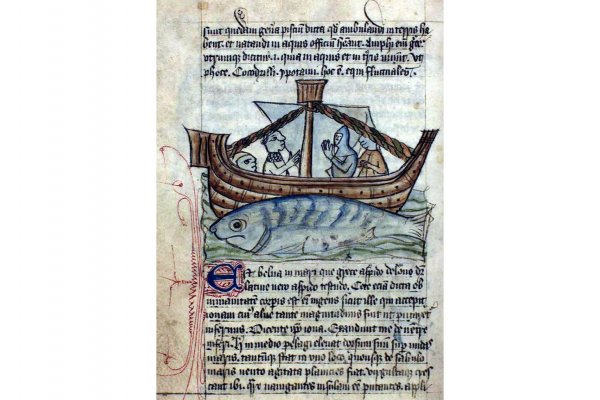 sunt quedam gen̄a pisciū dicta qd̓ ambulandi in terris ha
bent. et natandi in aquis officiū hn̄ant. Amphi em̄ gre
utrumque dicitur .i. quia in aquis et in t̄ris uiuūt. Vt
phoce. Cocodrilli. ypotami. hoc ē. equi fluctuales.
Est belua in mari que grece aspido delone dr̄
latine uero aspido testudo. Cete etiā dicta ob
inmanitatē corp̄is est eī ingens sicut ille qui excepit
ionam cui᷒ aluus tante magnitudinis fuit ut putaret᷑
infernus. Dicente ip̄o iona. Exaudiuit me de uentre
inferi. H̄ in medio pelagi eleuat dorsum suū sup̄ undas
maris. tantūque stat in uno loco. quousque de sabulo
maris uento agitata planicies fiat. virgultaque cres
cant ibi. Qr̄e nauigantes insulam eē putantes. appli